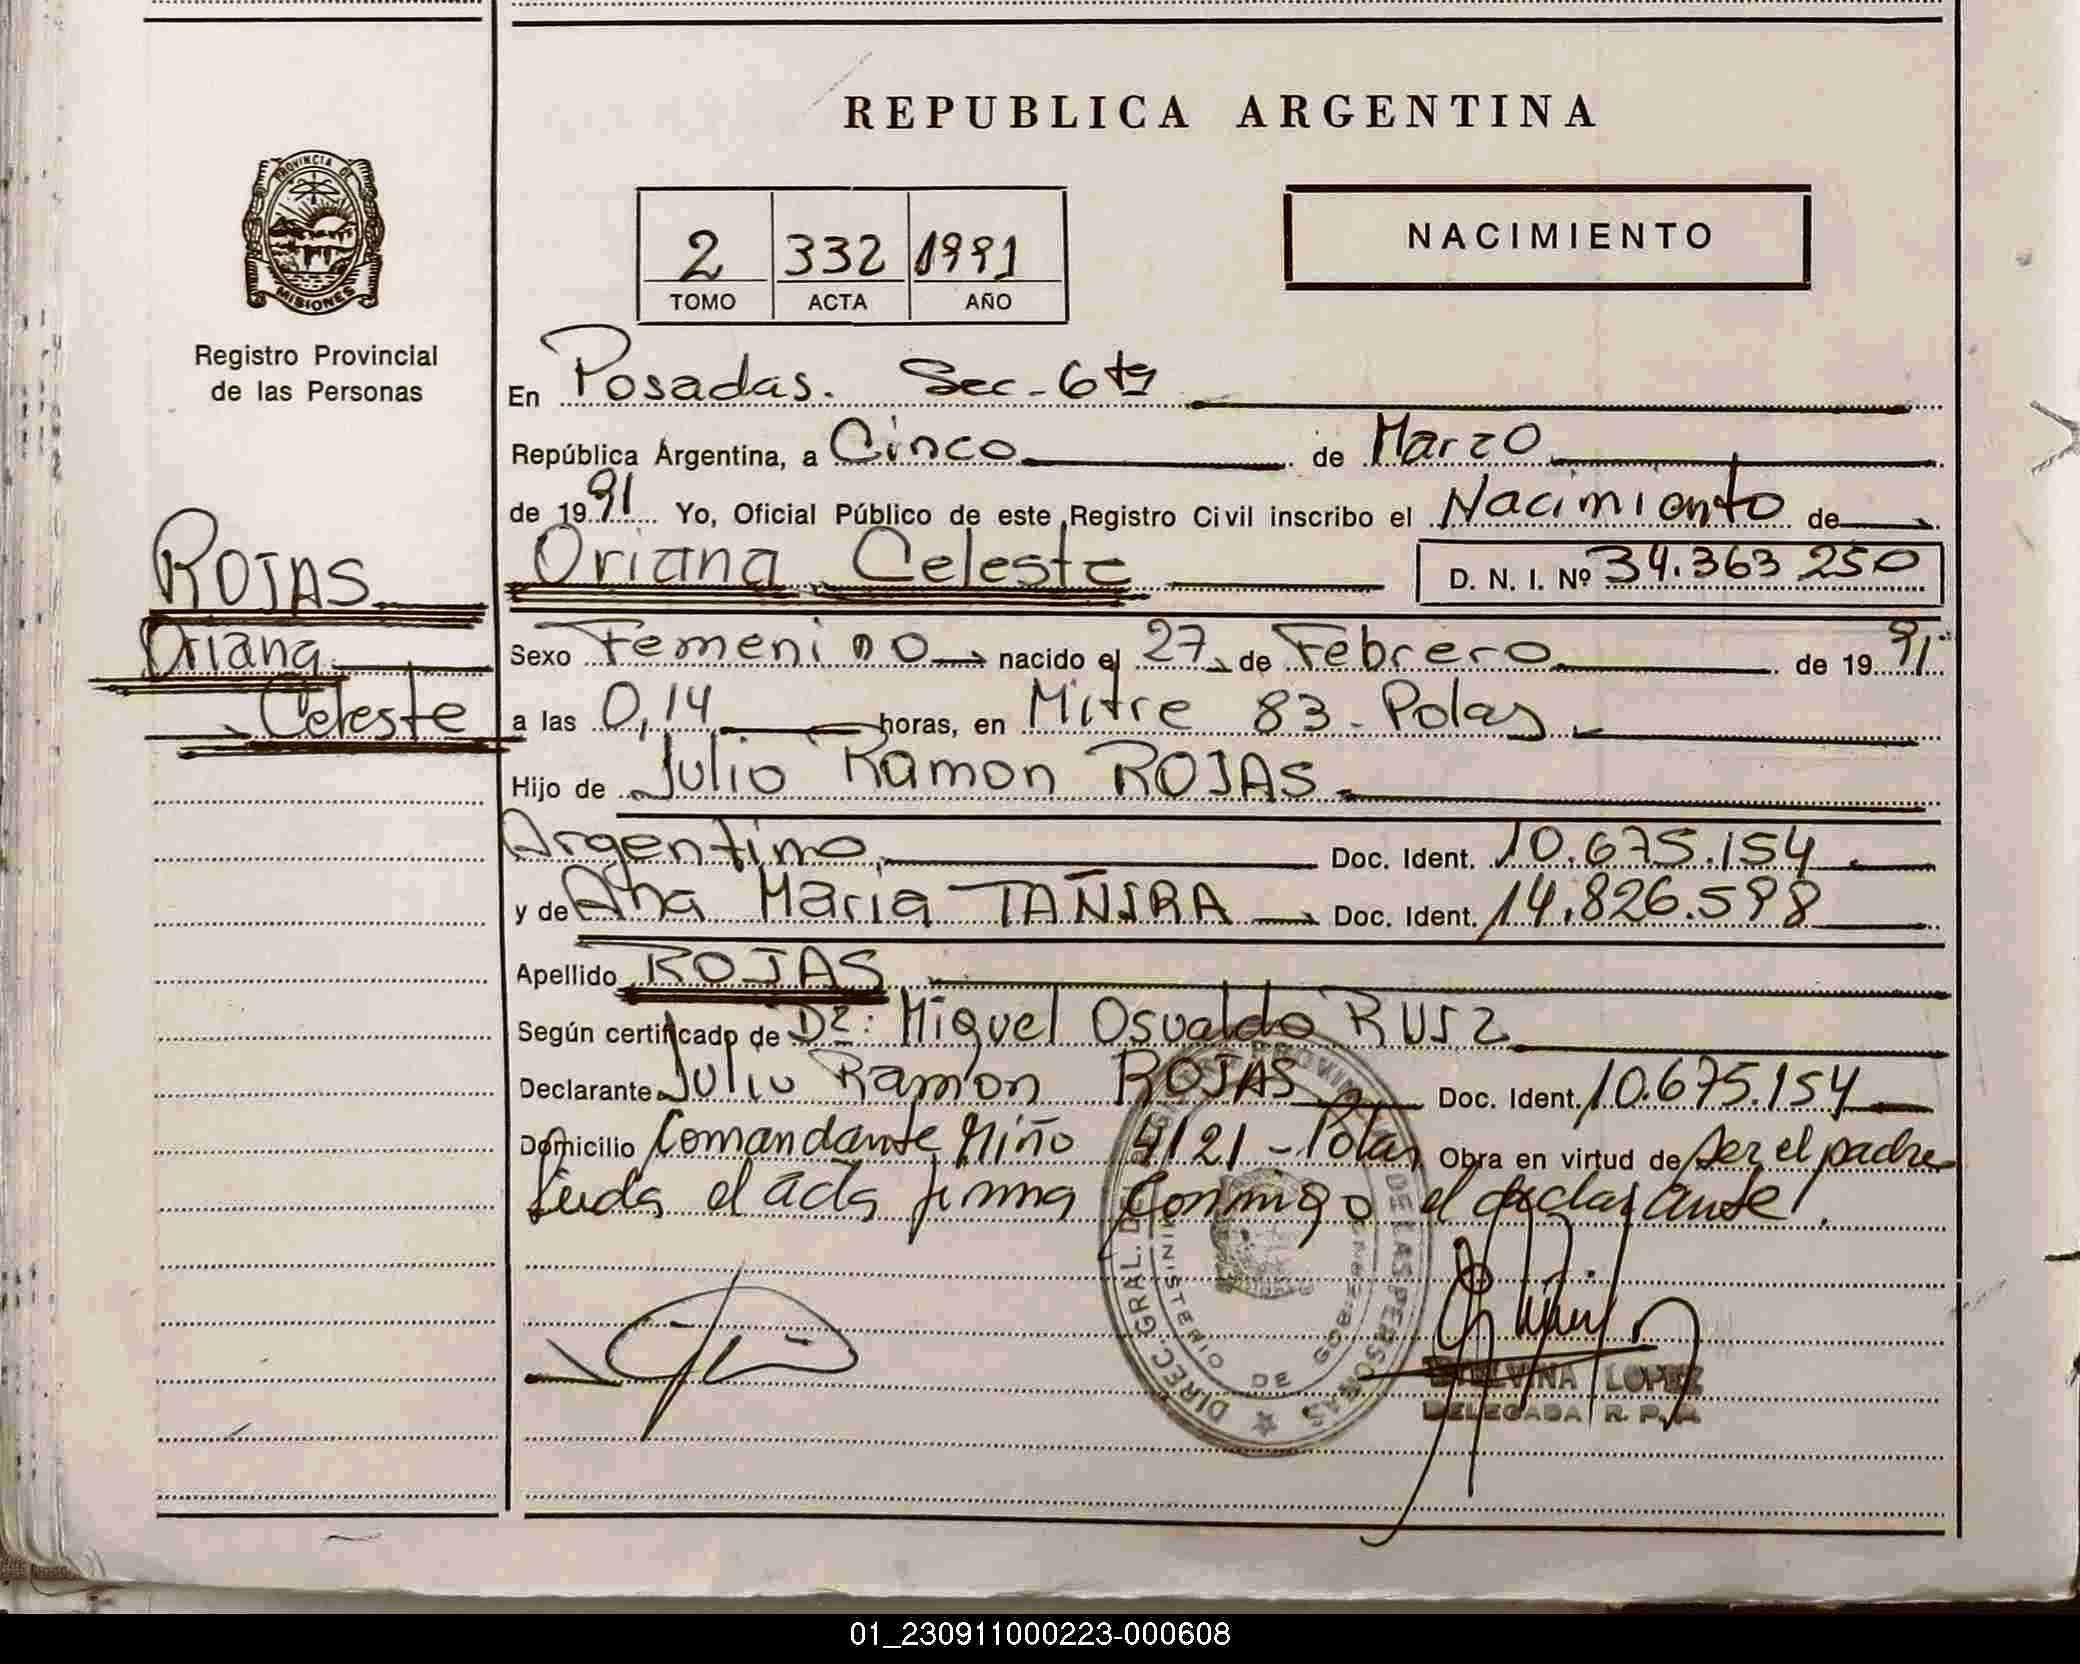 REPUBLICA ARGENTINA
PROVINCIA DE
MISIONES
Registro Provincial
de las Personas
2 332 1991
TOMO ACTA AÑO
NACIMIENTO
En Posadas. Sec-6ta
República Argentina, a Cinco de Marzo
de 1991 Yo, Oficial Público de este Registro Civil inscribo el Nacimiento de
ROJAS
Oriana
Celeste
Oriana Celeste D. N. I. Nº 34.363 250
Sexo Femenino nacido el 27 de Febrero de 1991
a las 0,14 horas, en Mitre 83 - Pdas
Hijo de Julio Ramon ROJAS
Argentino Doc. Ident. 10.675.154
y de Ana Maria Doc. Ident. 14.826.598
Apellido ROJAS
Según certificado de Dr: Miguel Osvaldo RUIZ
Declarante Julio Ramon ROJAS Doc. Ident. 10.675.154
Domicilio Comandante Miño 4121 - Pdas Obra en virtud de ser el padre
Leida el acta firma conmigo el declarante.
DIREC. GRAL. DEL DE LAS PERSONAS
MINISTERIO DE GOBIERNO
LOPEZ
DELEGADA R. P. P.
01_230911000223-000608